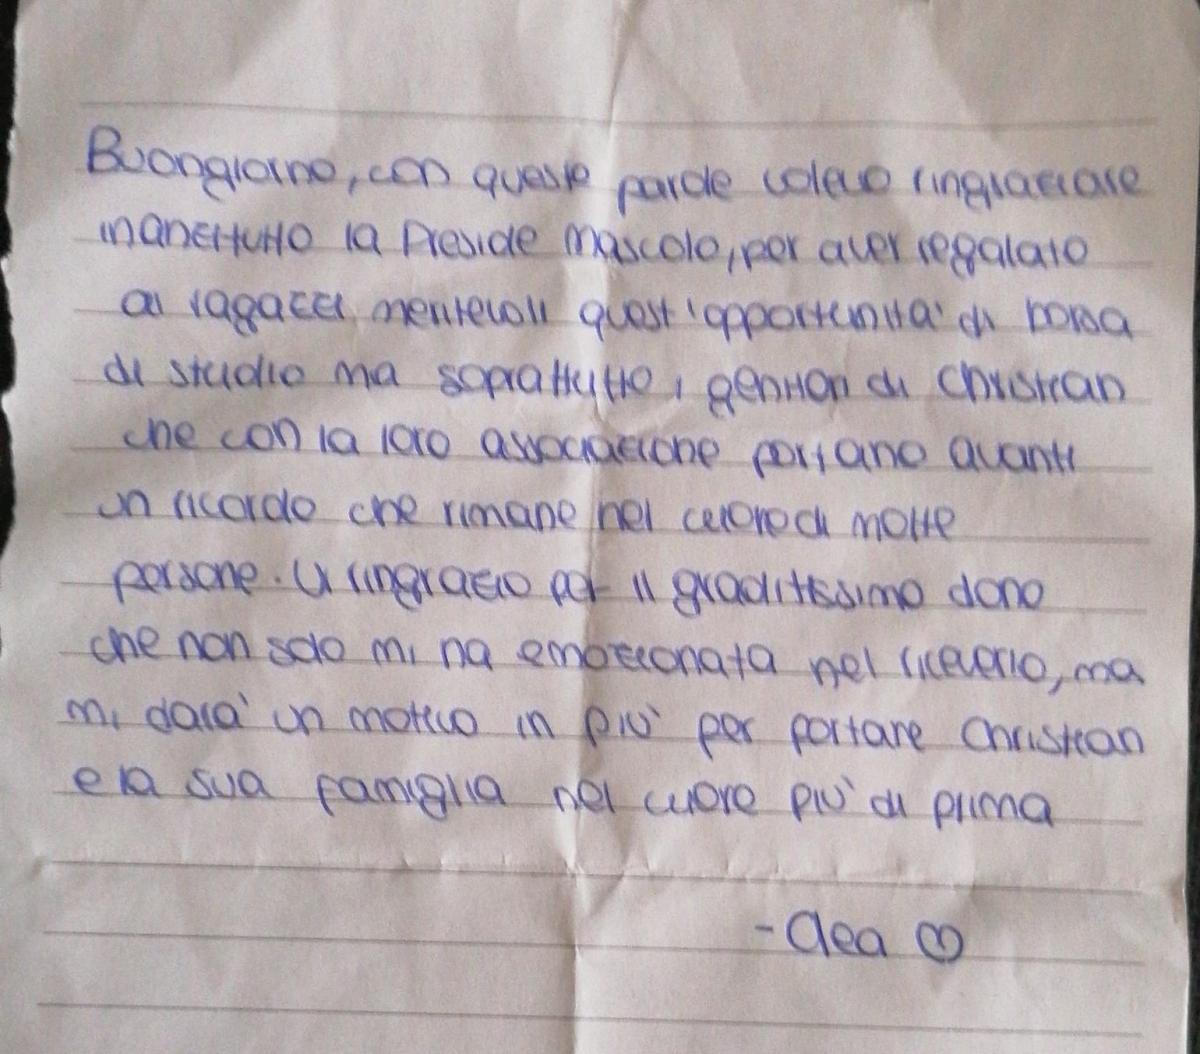 Buongiorno, con queste parole volevo ringraziare
inanzittutto la Preside Mascolo, per aver regalato
ai ragazzi meritevoli quest'opportunità di borsa
di studio ma soprattutto i genitori di Christian
che con la loro associazione portano avanti
un ricordo che rimane nel cuore di molte
persone. Vi ringrazio per il graditissimo dono
che non solo mi ha emozionata nel riceverlo, ma
mi darà un motivo in più per portare Christian
e la sua famiglia nel cuore più di prima
- Clea